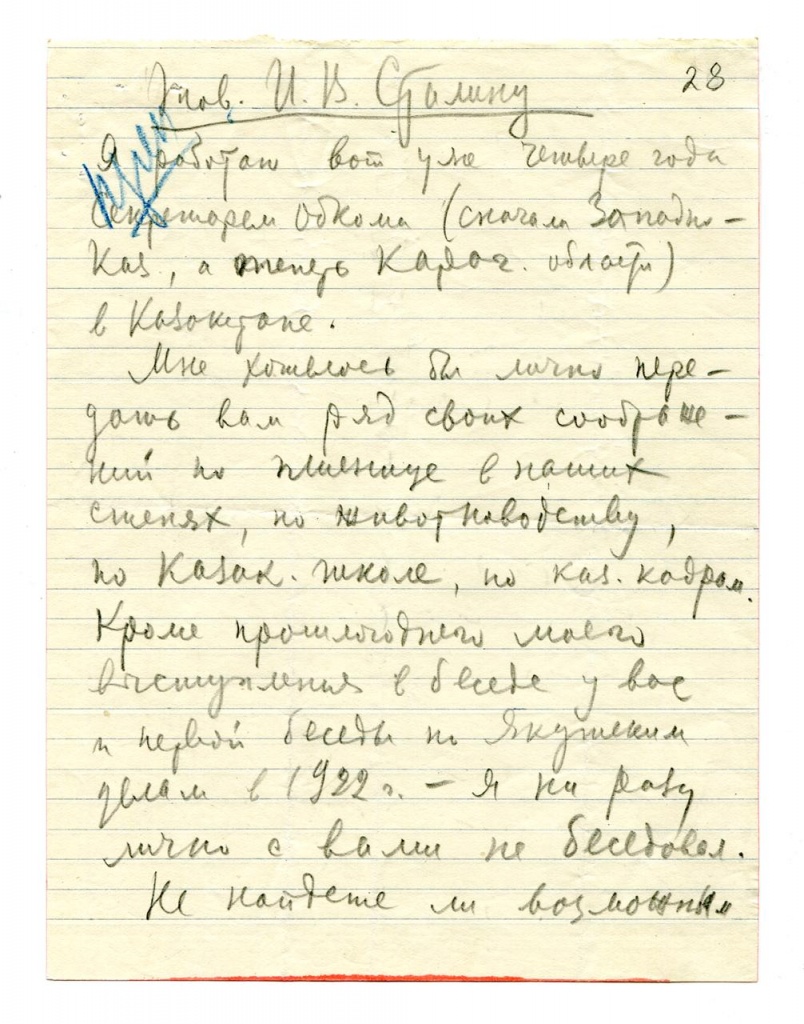 28
Тов. И. В. Сталину
Я работаю вот уже четвере года
секретарем Обкома (сначала Западно-
Каз, а теперь Караг. области)
в Казакстане.
Мне хотелось бы лично пере-
дать вам ряд своих соображе-
ний по пшенице в наших
степях, по животноводству,
по Казак. школе, по каз. кадрам.
Кроме прошлогоднего моего
выступления в беседе у вас
и первой беседы по Якутским
делам в 1922 г. - Я ни разу
лично с вами не беседовал.
Не найдете ли возможным